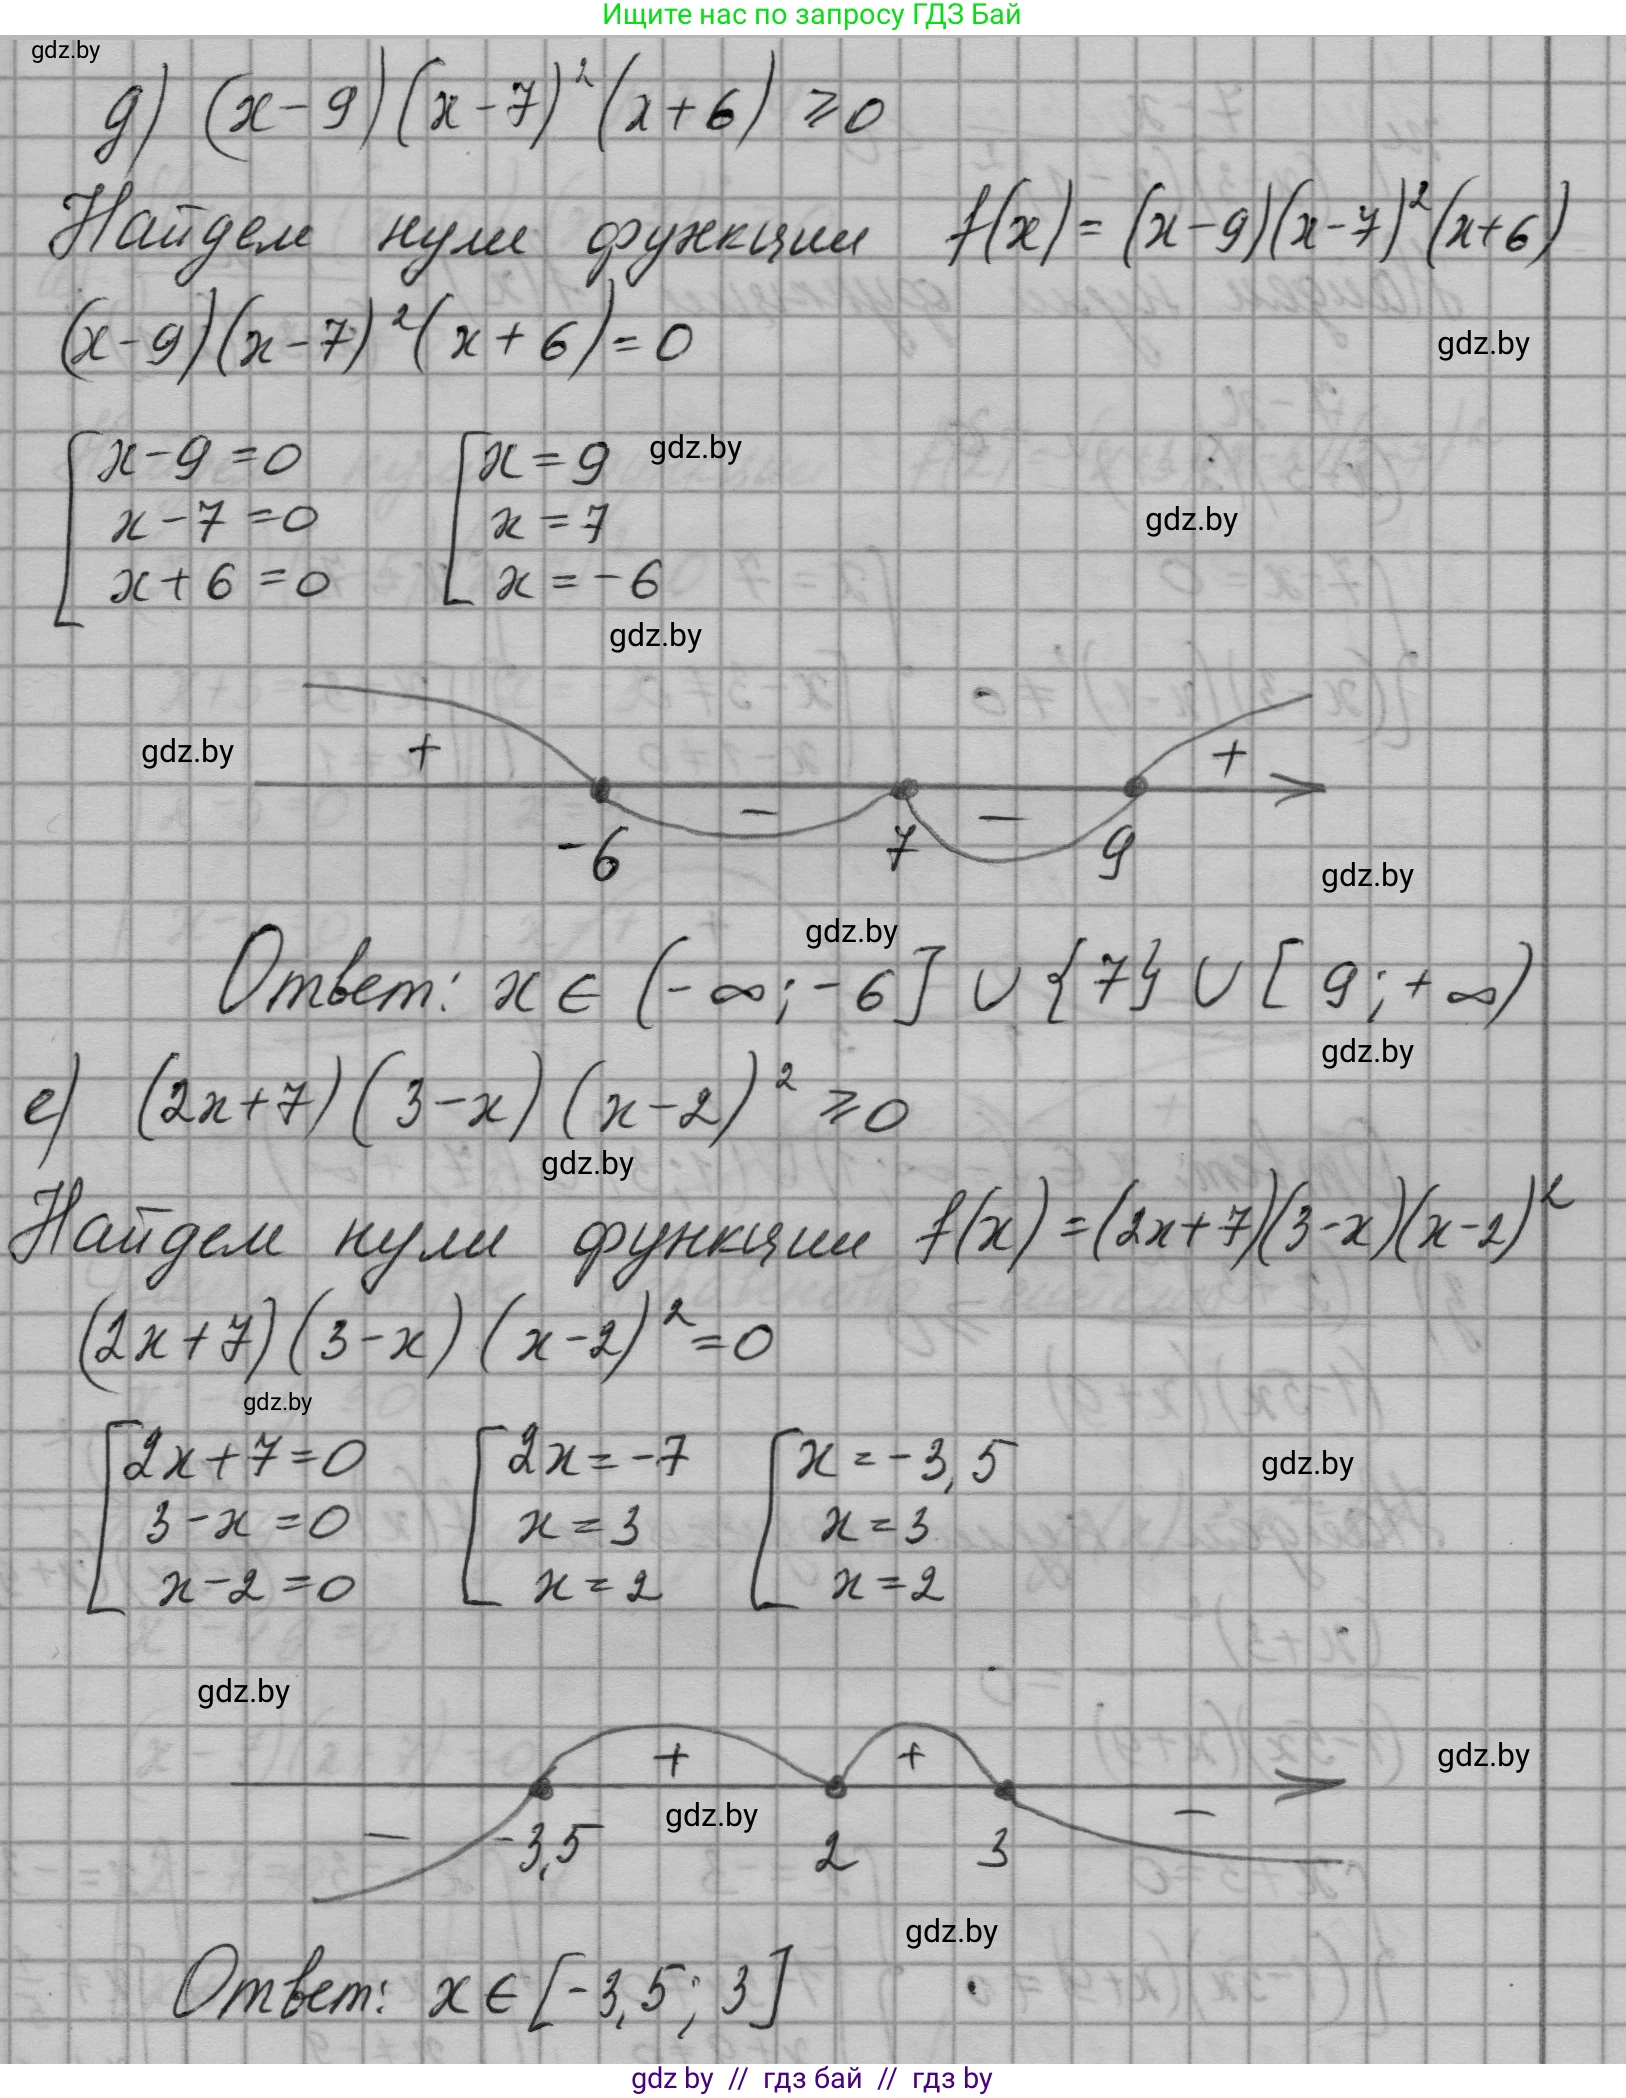 Ищите нас по запросу ГДЗ Бай
gdz.by
д) (x-9)(x-7)²(x+6) ⩾0
Найдем нули функции f(x)=(x-9)(x-7)²(x+6)
(x-9)(x-7)²(x+6)=0
gdz.by
x-9=0 x=9 gdz.by
x-7=0 x=7 gdz.by
x+6=0 x=-6
gdz.by
gdz.by + +
- -
-6 7 9
gdz.by
gdz.by
Ответ: x∈(-∞;-6]∪{7}∪[9;+∞)
gdz.by
е) (2x+7)(3-x)(x-2)²⩾0
gdz.by
Найдем нули функции f(x)=(2x+7)(3-x)(x-2)²
(2x+7)(3-x)(x-2)²=0
gdz.by
2x+7=0 2x=-7 x=-3,5 gdz.by
3-x=0 x=3 x=3
x-2=0 x=2 x=2
gdz.by
+ + gdz.by
- gdz.by -
-3,5 2 3
gdz.by
Ответ: x∈[-3,5; 3]
gdz by // гдз бай // гдз by